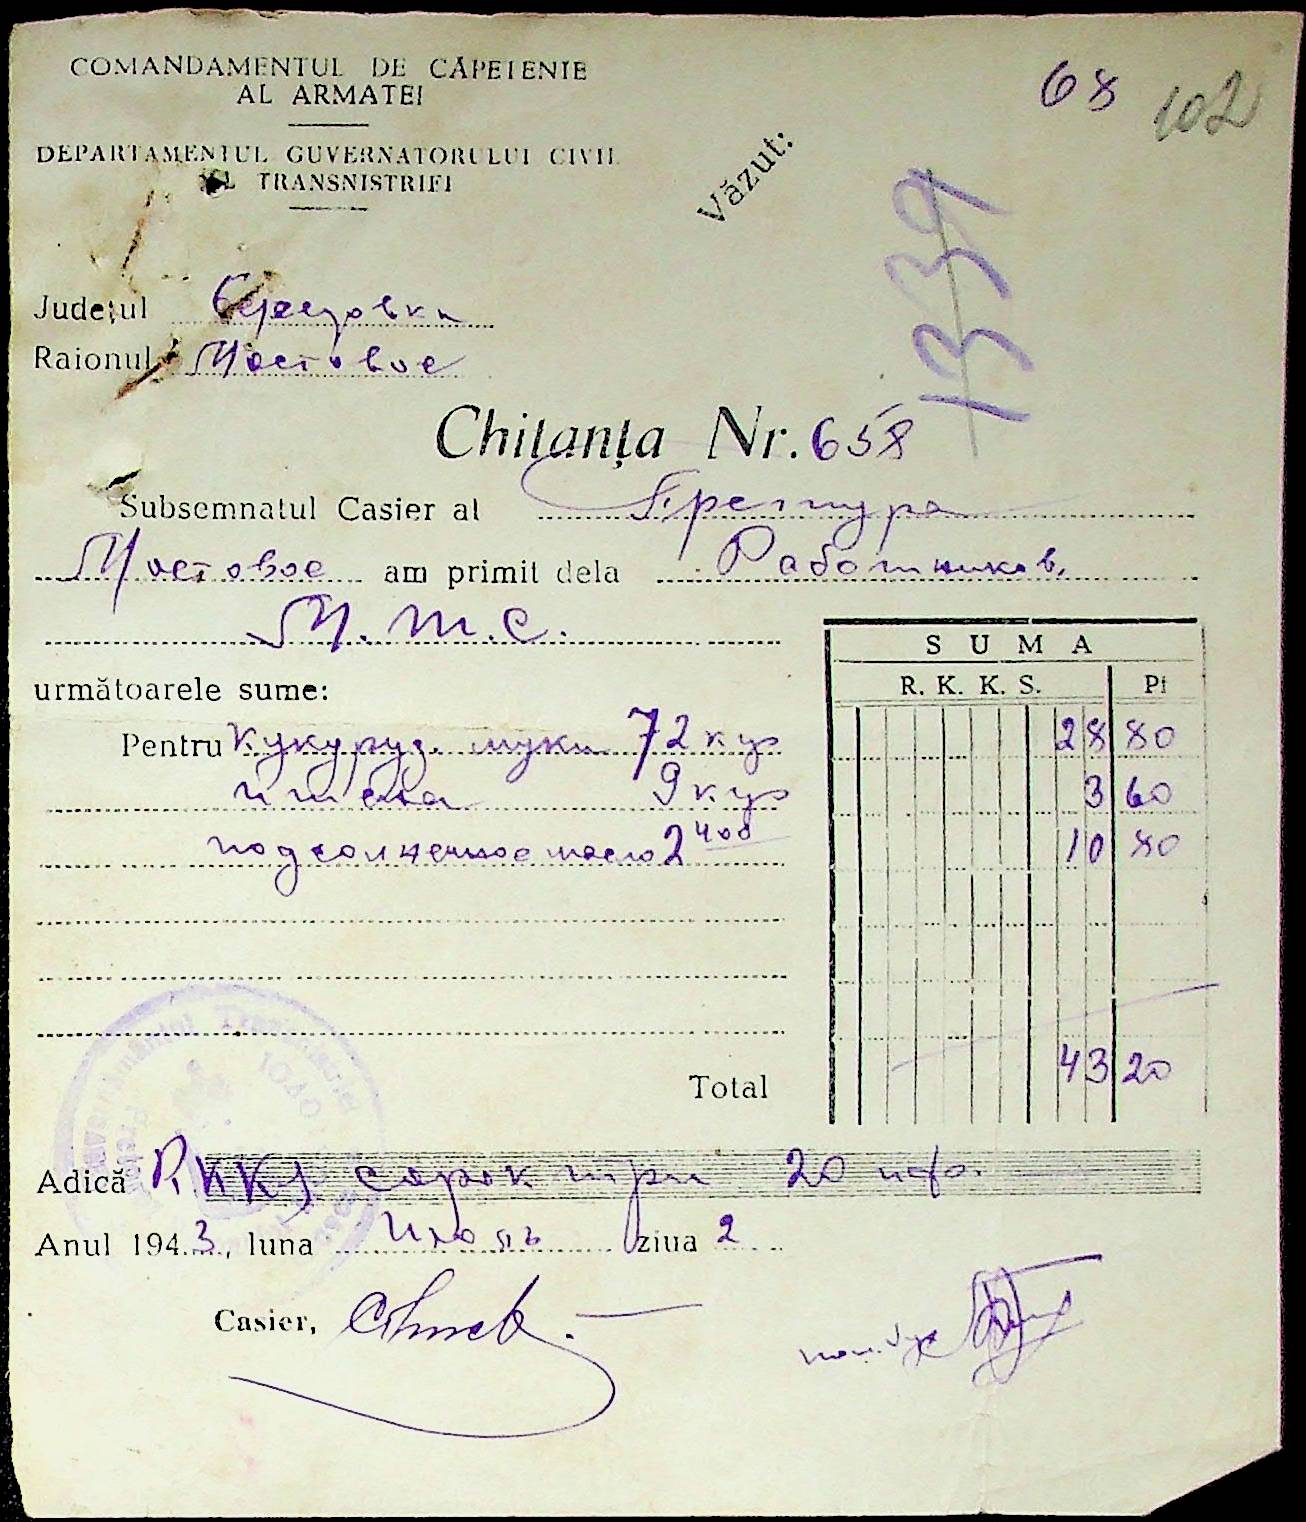 COMANDAMENTUL DE CĂPETENIE
AL ARMATEI
68
102
DEPARTAMENTUL GUVERNATORULUI CIVIL
AL TRANSNISTRIEI
Văzut:
1339
Județul Березовка
Raionul Мостовое
Chitanța Nr. 658
Subsemnatul Casier al Претура
Мостовое am primit dela Работников
М.Т.С.
următoarele sume:
SUMA
R. K. K. S. Pf
Pentru кукуруз. муки 72 кгр 28 80
пшена 9 кгр 3 60
подсолнечное масло 2 400 10 80
Total 43 20
Adică RKKS сорок три 20 пф.
Anul 1943, luna Июль ziua 2
Casier,